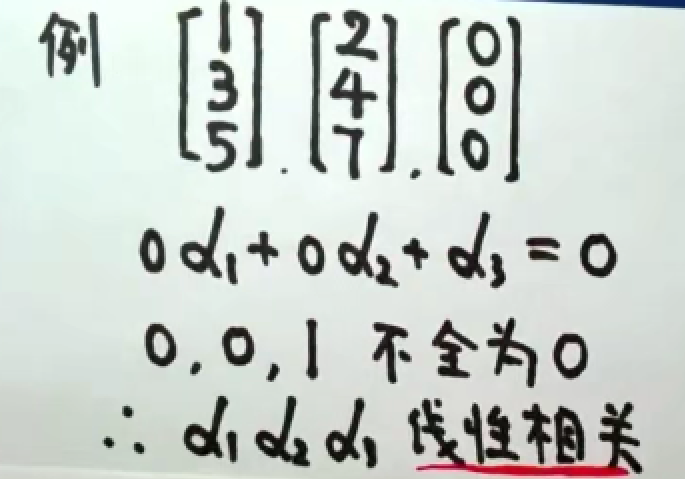 例 [1 3 5] . [2 4 7] . [0 0 0]
0α₁ + 0α₂ + α₃ = 0
0, 0, 1 不全为0
∴ α₁ α₂ α₃ 线性相关